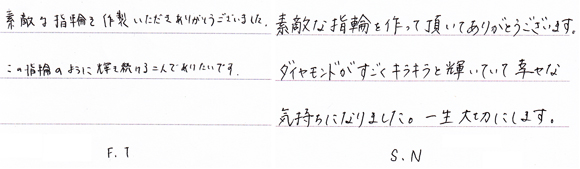 素敵な指輪を作製いただきありがとうございました。
この指輪のように輝き続ける二人でありたいです。
F.T
素敵な指輪を作って頂いてありがとうございます。
ダイヤモンドがすごくキラキラと輝いていて幸せな
気持ちになりました。一生大切にします。
S.N